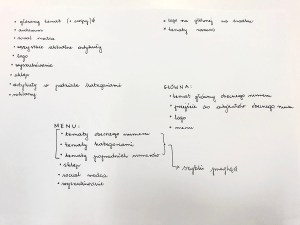 • główny temat (+ zapis)
• archiwum
• social media
• wszystkie aktualne artykuły
• logo
• wyszukiwanie
• sklep
• artykuły w podziale kategoriami
• reklamy
• logo na głównej na środku
• tematy
GŁÓWNA:
• temat główny obecnego numeru
• przejście do artykułów obecnego numeru
• logo
• menu
MENU:
• tematy obecnego numeru
• tematy kategoriami
• tematy poprzednich numerów
• sklep
• social media
• wyszukiwanie
→ szybki przegląd